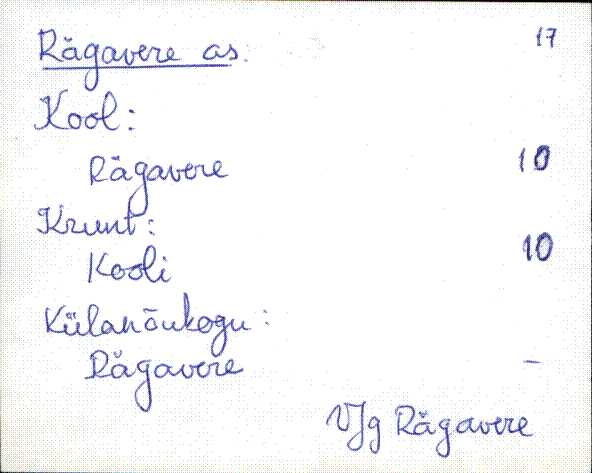 Rägavere as. 17
Kool:
Rägavere 10
Krunt:
Kooli 10
Külanõukogu:
Rägavere –
V/g Rägavere